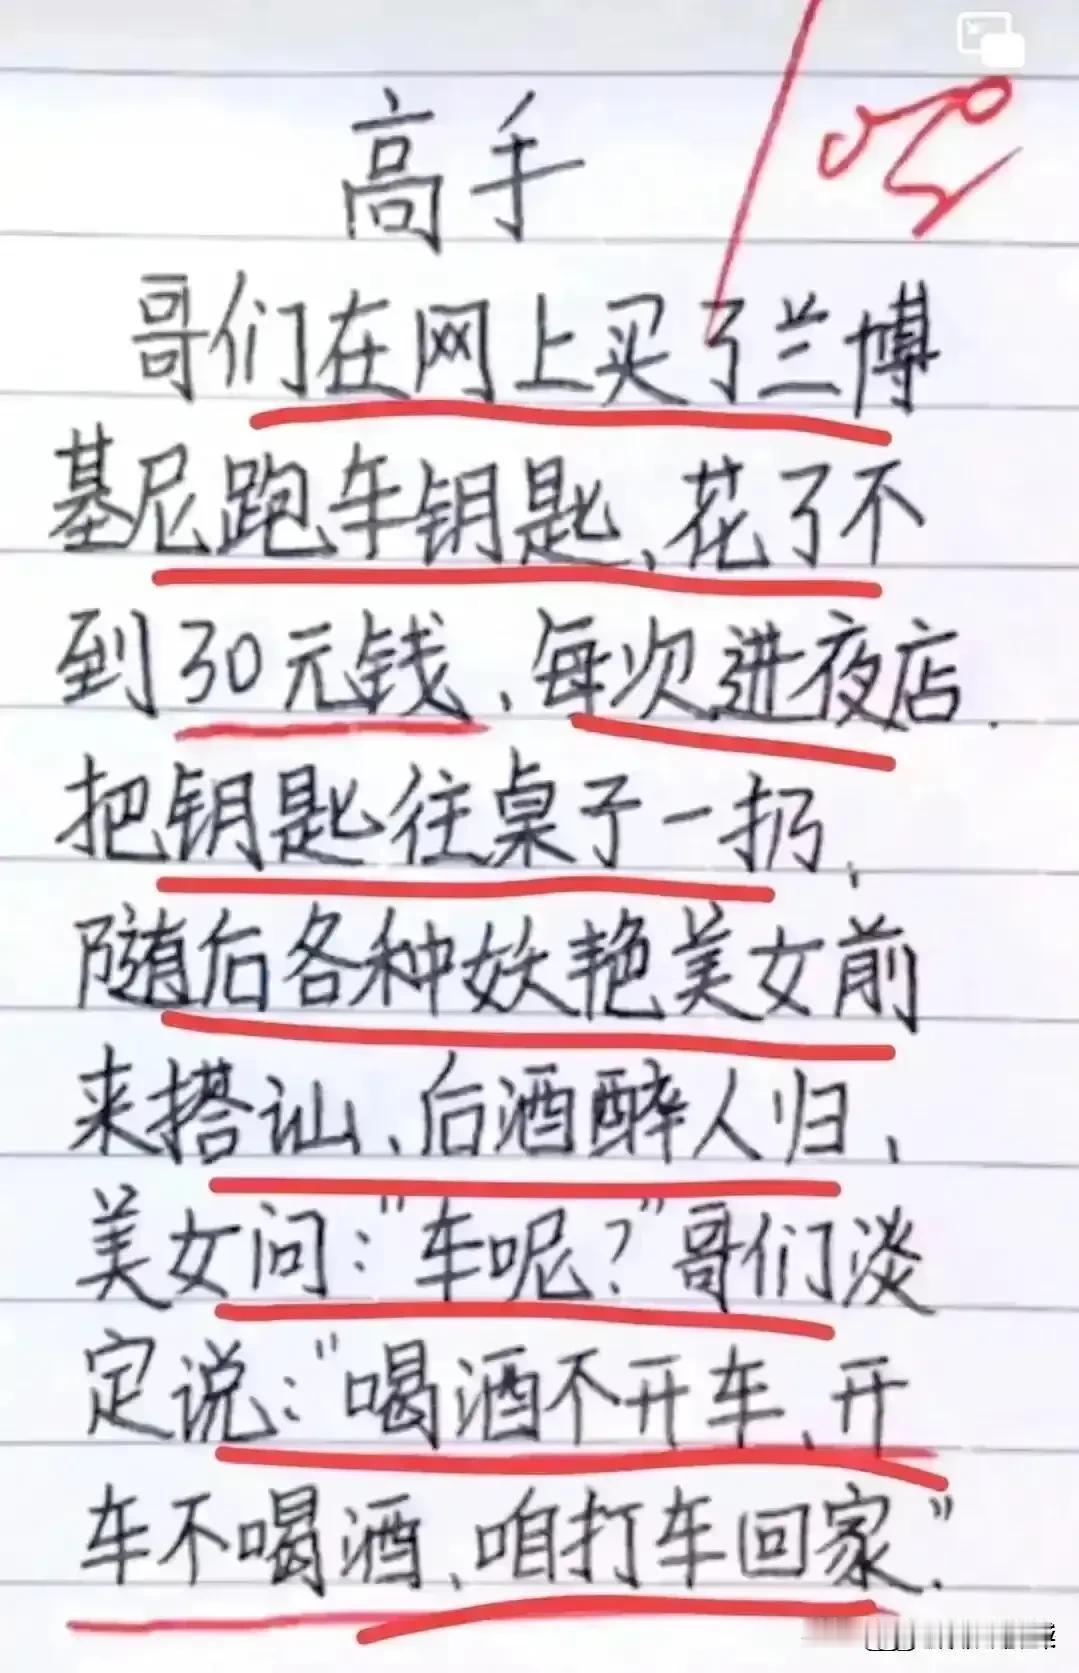 高手
哥们在网上买了兰博
基尼跑车钥匙、花了不
到30元钱、每次进夜店.
把钥匙往桌子一扔、
随后各种妖艳美女前
来搭讪、后酒醉人归、
美女问："车呢？"哥们淡
定说："喝酒不开车、开
车不喝酒、咱打车回家."